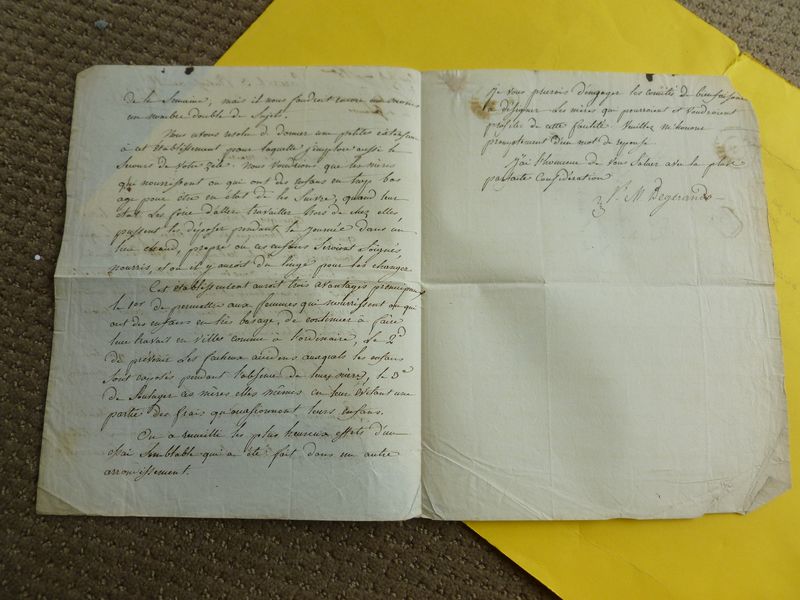 de la Semaine, mais il nous faudroit encore au moins
un nombre double de Sujets.
Nous avons résolu de donner une petite extension
à cet établissement pour laquelle j'implore aussi le
Secours de votre zèle. Nous voudrions que les mères
qui nourrissent ou qui ont des enfans en trop bas
age pour etre en état de les Suivre, quand leur
état les force d'aller travailler hors de chez elles,
pussent les déposer pendant la journée dans un
lieu chaud, propre ou ces enfans Seroient Soignés,
nourris, et ou il y auroit du linge pour les changer
Cet établissement auroit trois avantages principaux
le 1er de permettre aux femmes qui nourrissent ou qui
ont des enfans en très bas age, de continuer à faire
leur travail en villes comme à l'ordinaire, le 2d
de prévenir les facheux accidens auxquels les enfans
Sont exposés pendant l'absence de leurs mères, le 3e
de Soulager ces mères elles mêmes en leur évitant une
partie des frais qu'occasionnent leurs enfans.
On a recueilli les plus heureux effets d'un
essai Semblable qui a été fait dans un autre
arrondissement.
Je vous prierois d'engager les comités de bienfaisance
à désigner les mères qui pourroient et voudroient
profiter de cette facilité. Veuillez m'honorer
promptement d'un mot de reponse
J'ai l'honneur de vous Saluer avec la plus
parfaite Considération
J. M. Degerando